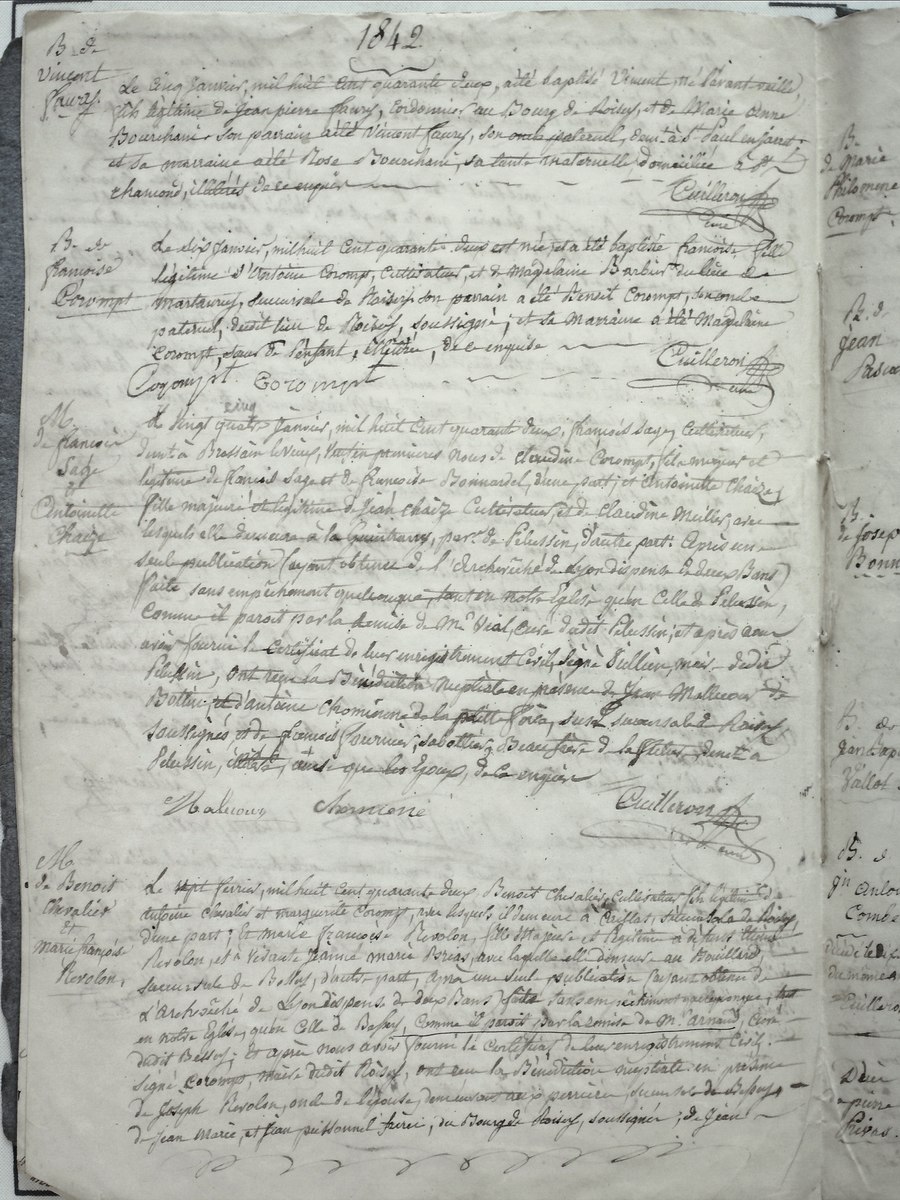 1842
B. de
Vincent
Faure
Le cinq janvier, mil huit cent quarante deux, a été baptisé Vincent, né l'avant veille,
fils légitime de Jean pierre faure, Cordonnier au Bourg de Roisey, et de Marie anne
Bourchani son parain a été Vincent faure, son oncle paternel, demt à St Paul en jarret;
et sa marraine a été Rose Bourchani, sa tante maternelle, domiciliée à St
chamond, illitérés de ce enquis
Cuilleron
curé
B. de
françoise
Corompt
Le dix janvier, mil huit cent quarante deux est née, et a été baptisée françoise, fille
légitime d'Antoine Coromp, cultivateur, et de Magdelaine Barbier du lieu de
succursale de Roisey. son parrain a été Benoit Corompt, son oncle
paternel, dudit lieu de Roisey, soussigné; et sa marraine a été Magdelaine
Corompt, sœur de l'enfant, illitérée, de ce enquise
Cuilleron
curé
Coyompt Corompt
M.
de françois
Sage
et
Antoinette
Chaize
cinq
Le vingt quatre janvier, mil huit cent quarante deux, françois Sage, Cultivateur,
demt à veuf en premières noces de Claudine Corompt, fils majeur et
légitime de françois Sage et de françoise Bonnardel, d'une part; et Antoinette Chaize,
fille majeure et légitime de Jean Chaize Cultivateur, et de Claudine avec
lesquels elle demeure à la parse de Pelussin, d'autre part. Après une
seule publication (ayant obtenu de l'Archevêché de Lyon dispense de deux Bans)
faite sans empêchement quelconque, tant en notre Eglise qu'en celle de Pelussin,
comme il paroit par la remise de Mr Vial, curé dudit Pelussin; et après nous
avoir fourni le certificat de leur enregistrement civil, signé Jullien, maire dudit
Pelussin, ont reçu la Bénédiction nuptiale en présence de Jean Malleour de
et d'antoine Chemienne de la petite succursale de Roisey
soussignés et de françois fournier, sabottier, Beau frère de demt à
Pelussin, illitéré, ainsi que les Epoux, de ce enquis
Cuilleron
curé
M.
de Benoit
Chevalier
et
Marie françoise
Revolon,
Le sept février, mil huit cent quarante deux Benoit Chevalier, cultivateur, fils légitime d'
antoine chevalier et marguerite Corompt, avec lesquels il demeure à succursale de Roisey,
d'une part; Et marie françoise Revolon, fille Majeure et légitime à défunt
Revolon, et à vivante jeanne marie avec laquelle elle demeure au
succursale de Bessey, d'autre part, après une seule publication (ayant obtenu de
l'Archevêché de Lyon dispense de deux Bans) faite sans empêchement quelconque, tant
en notre Eglise, qu'en celle de Bessey, comme il paroit par la remise de Mr arnaud, Curé
dudit Bessey; Et après nous avoir fourni le certificat de leur enregistrement civil.
signé Corompt, maire dudit Roisey, ont reçu la Bénédiction nuptiale en présence
de Joseph Revolon, oncle de l'épouse, demeurant aux perrière, succursale de Bessey,
de Jean Marie, et Jean peissonnel frère, du Bourg de Roisey, soussignés; de Jean
B.
de Marie
Philomene
Corompt.
B. de
Jean
B.
de Josep
Bonn
B. de
jean
Vallot
B. de
jn Antoi
Combe
Cuillero